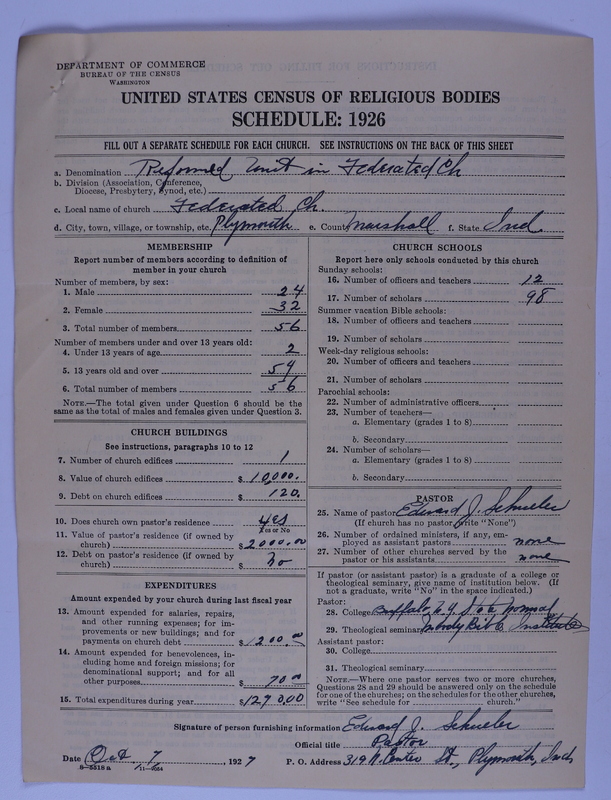 DEPARTMENT OF COMMERCE
BUREAU OF THE CENSUS
WASHINGTON
UNITED STATES CENSUS OF RELIGIOUS BODIES
SCHEDULE: 1926
FILL OUT A SEPARATE SCHEDULE FOR EACH CHURCH. SEE INSTRUCTIONS ON THE BACK OF THIS SHEET
a. Denomination Reformed Unit in Federated Ch
b. Division (Association, Conference,
Diocese, Presbytery, Synod, etc.)
c. Local name of church Federated Ch.
d. City, town, village, or township, etc. Plymouth e. County Marshall f. State Ind.
MEMBERSHIP
Report number of members according to definition of
member in your church
Number of members, by sex:
1. Male 24
2. Female 32
3. Total number of members 56
Number of members under and over 13 years old:
4. Under 13 years of age 2
5. 13 years old and over 54
6. Total number of members 56
NOTE.—The total given under Question 6 should be the
same as the total of males and females given under Question 3.
CHURCH BUILDINGS
See instructions, paragraphs 10 to 12
7. Number of church edifices 1
8. Value of church edifices $ 10,000.
9. Debt on church edifices $ 120.
10. Does church own pastor's residence yes
Yes or No
11. Value of pastor's residence (if owned by
church) $ 2000.00
12. Debt on pastor's residence (if owned by
church) $ no
EXPENDITURES
Amount expended by your church during last fiscal year
13. Amount expended for salaries, repairs,
and other running expenses; for im-
provements or new buildings; and for
payments on church debt $ 1200.00
14. Amount expended for benevolences, in-
cluding home and foreign missions; for
denominational support; and for all
other purposes $ 70 00
15. Total expenditures during year $ 1270.00
CHURCH SCHOOLS
Report here only schools conducted by this church
Sunday schools:
16. Number of officers and teachers 12
17. Number of scholars 98
Summer vacation Bible schools:
18. Number of officers and teachers
19. Number of scholars
Week-day religious schools:
20. Number of officers and teachers
21. Number of scholars
Parochial schools:
22. Number of administrative officers
23. Number of teachers—
a. Elementary (grades 1 to 8)
b. Secondary
24. Number of scholars—
a. Elementary (grades 1 to 8)
b. Secondary
PASTOR
25. Name of pastor Edward J. Schueler
(If church has no pastor, write "None")
26. Number of ordained ministers, if any, em-
ployed as assistant pastors none
27. Number of other churches served by the
pastor or his assistants none
If pastor (or assistant pastor) is a graduate of a college or
theological seminary, give name of institution below. (If
not a graduate, write "No" in the space indicated.)
Pastor:
28. College Buffalo N.Y. State Normal
29. Theological seminary Moody Bible Institute
Assistant pastor:
30. College
31. Theological seminary
NOTE.—Where one pastor serves two or more churches,
Questions 28 and 29 should be answered only on the schedule
for one of the churches; on the schedules for the other churches,
write "See schedule for church."
Signature of person furnishing information Edward J. Schueler
Official title Pastor
Date Oct 7, 1927 P. O. Address 319 N. Center St., Plymouth, Ind.
8-5518a 11-9054